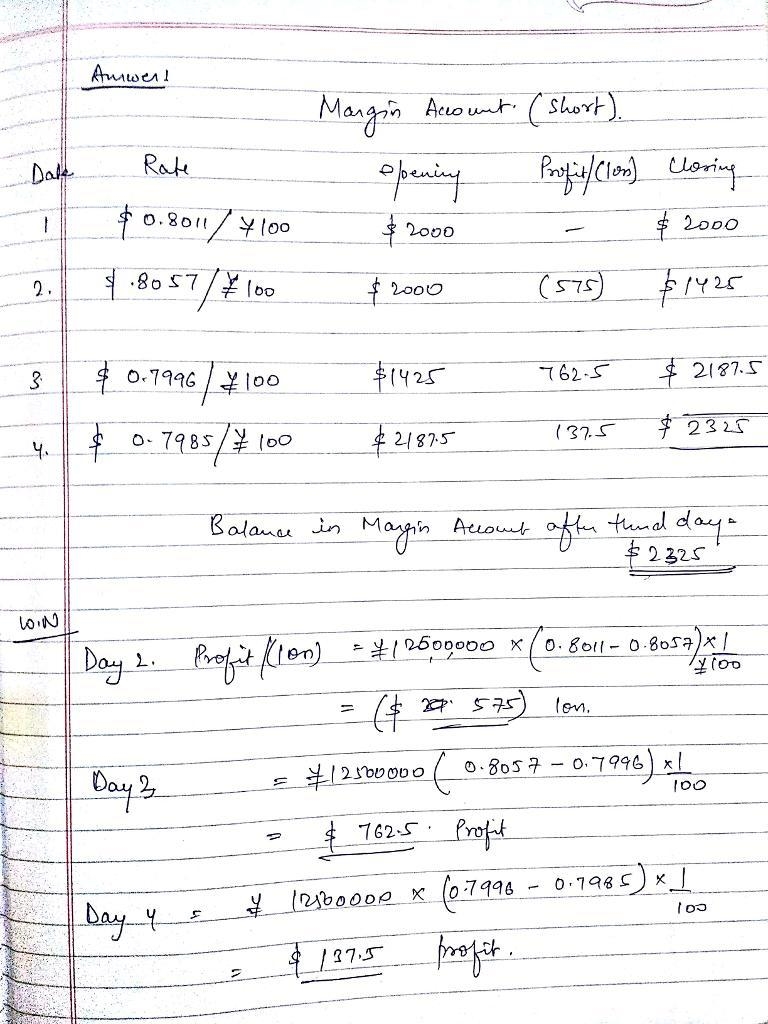 Answer!
Margin Account. (Short).
Date Rate Opening Profit/(loss) Closing
1 $ 0.8011/¥100 $ 2000 – $ 2000
2. $ .8057/¥100 $ 2000 (575) $1425
3 $ 0.7996/¥100 $1425 762.5 $ 2187.5
4. $ 0.7985/¥100 $2187.5 137.5 $ 2325
Balance in Margin Account after third day =
$ 2325
W.N
Day 2. Profit/(loss) = ¥12500000 x (0.8011 - 0.8057) x 1/¥100
= ($ 575) loss.
Day 3 = ¥12500000 (0.8057 - 0.7996) x 1/100
= $ 762.5. Profit
Day 4 = ¥ 12500000 x (0.7996 - 0.7985) x 1/100
= $ 137.5 profit.